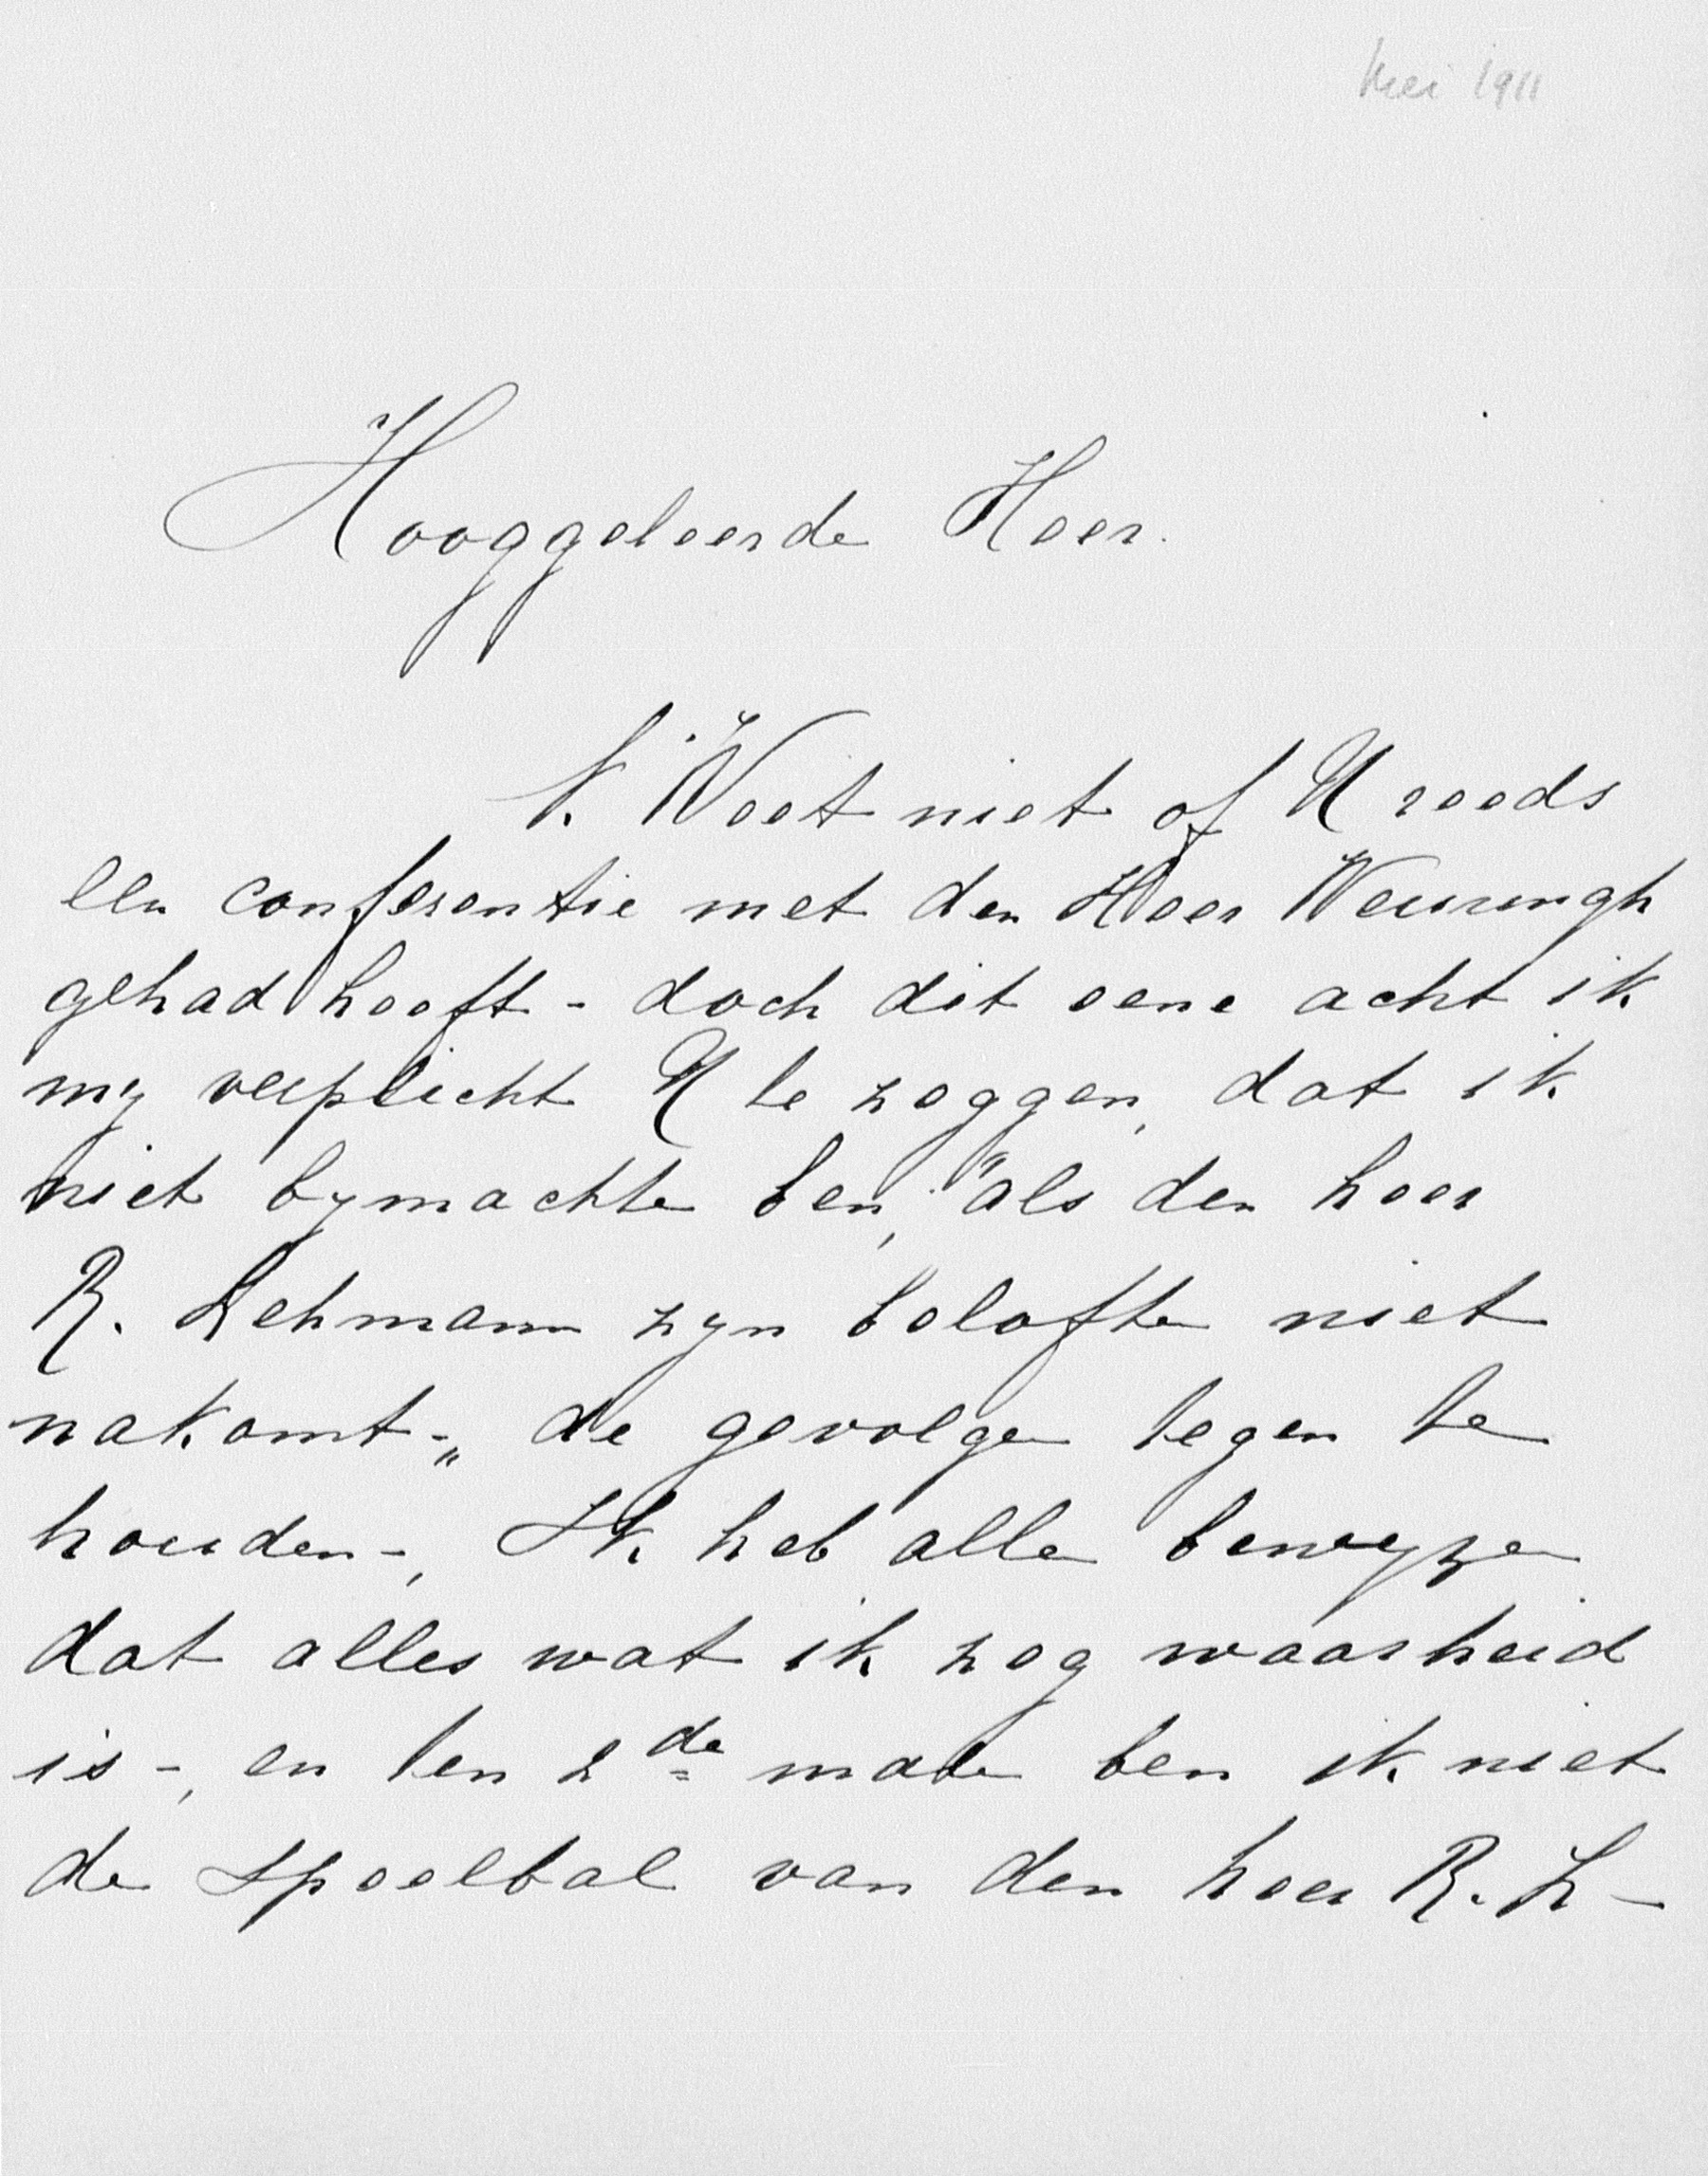 Mei 1911
Hooggeleerde Heer.
k. Weet niet of U reeds
een conferentie met den Heer
gehad heeft - doch dit eene acht ik
my verplicht U te zeggen, dat ik
niet bymachte ben, "als den heer
R. Lehmann zyn belofte niet
nakomt -„ de gevolgen tegen te
houden -, Ik heb alle bewyzen
dat alles wat ik zeg waarheid
is -, en ten 2de male ben ik niet
de speelbal van den heer R. L -